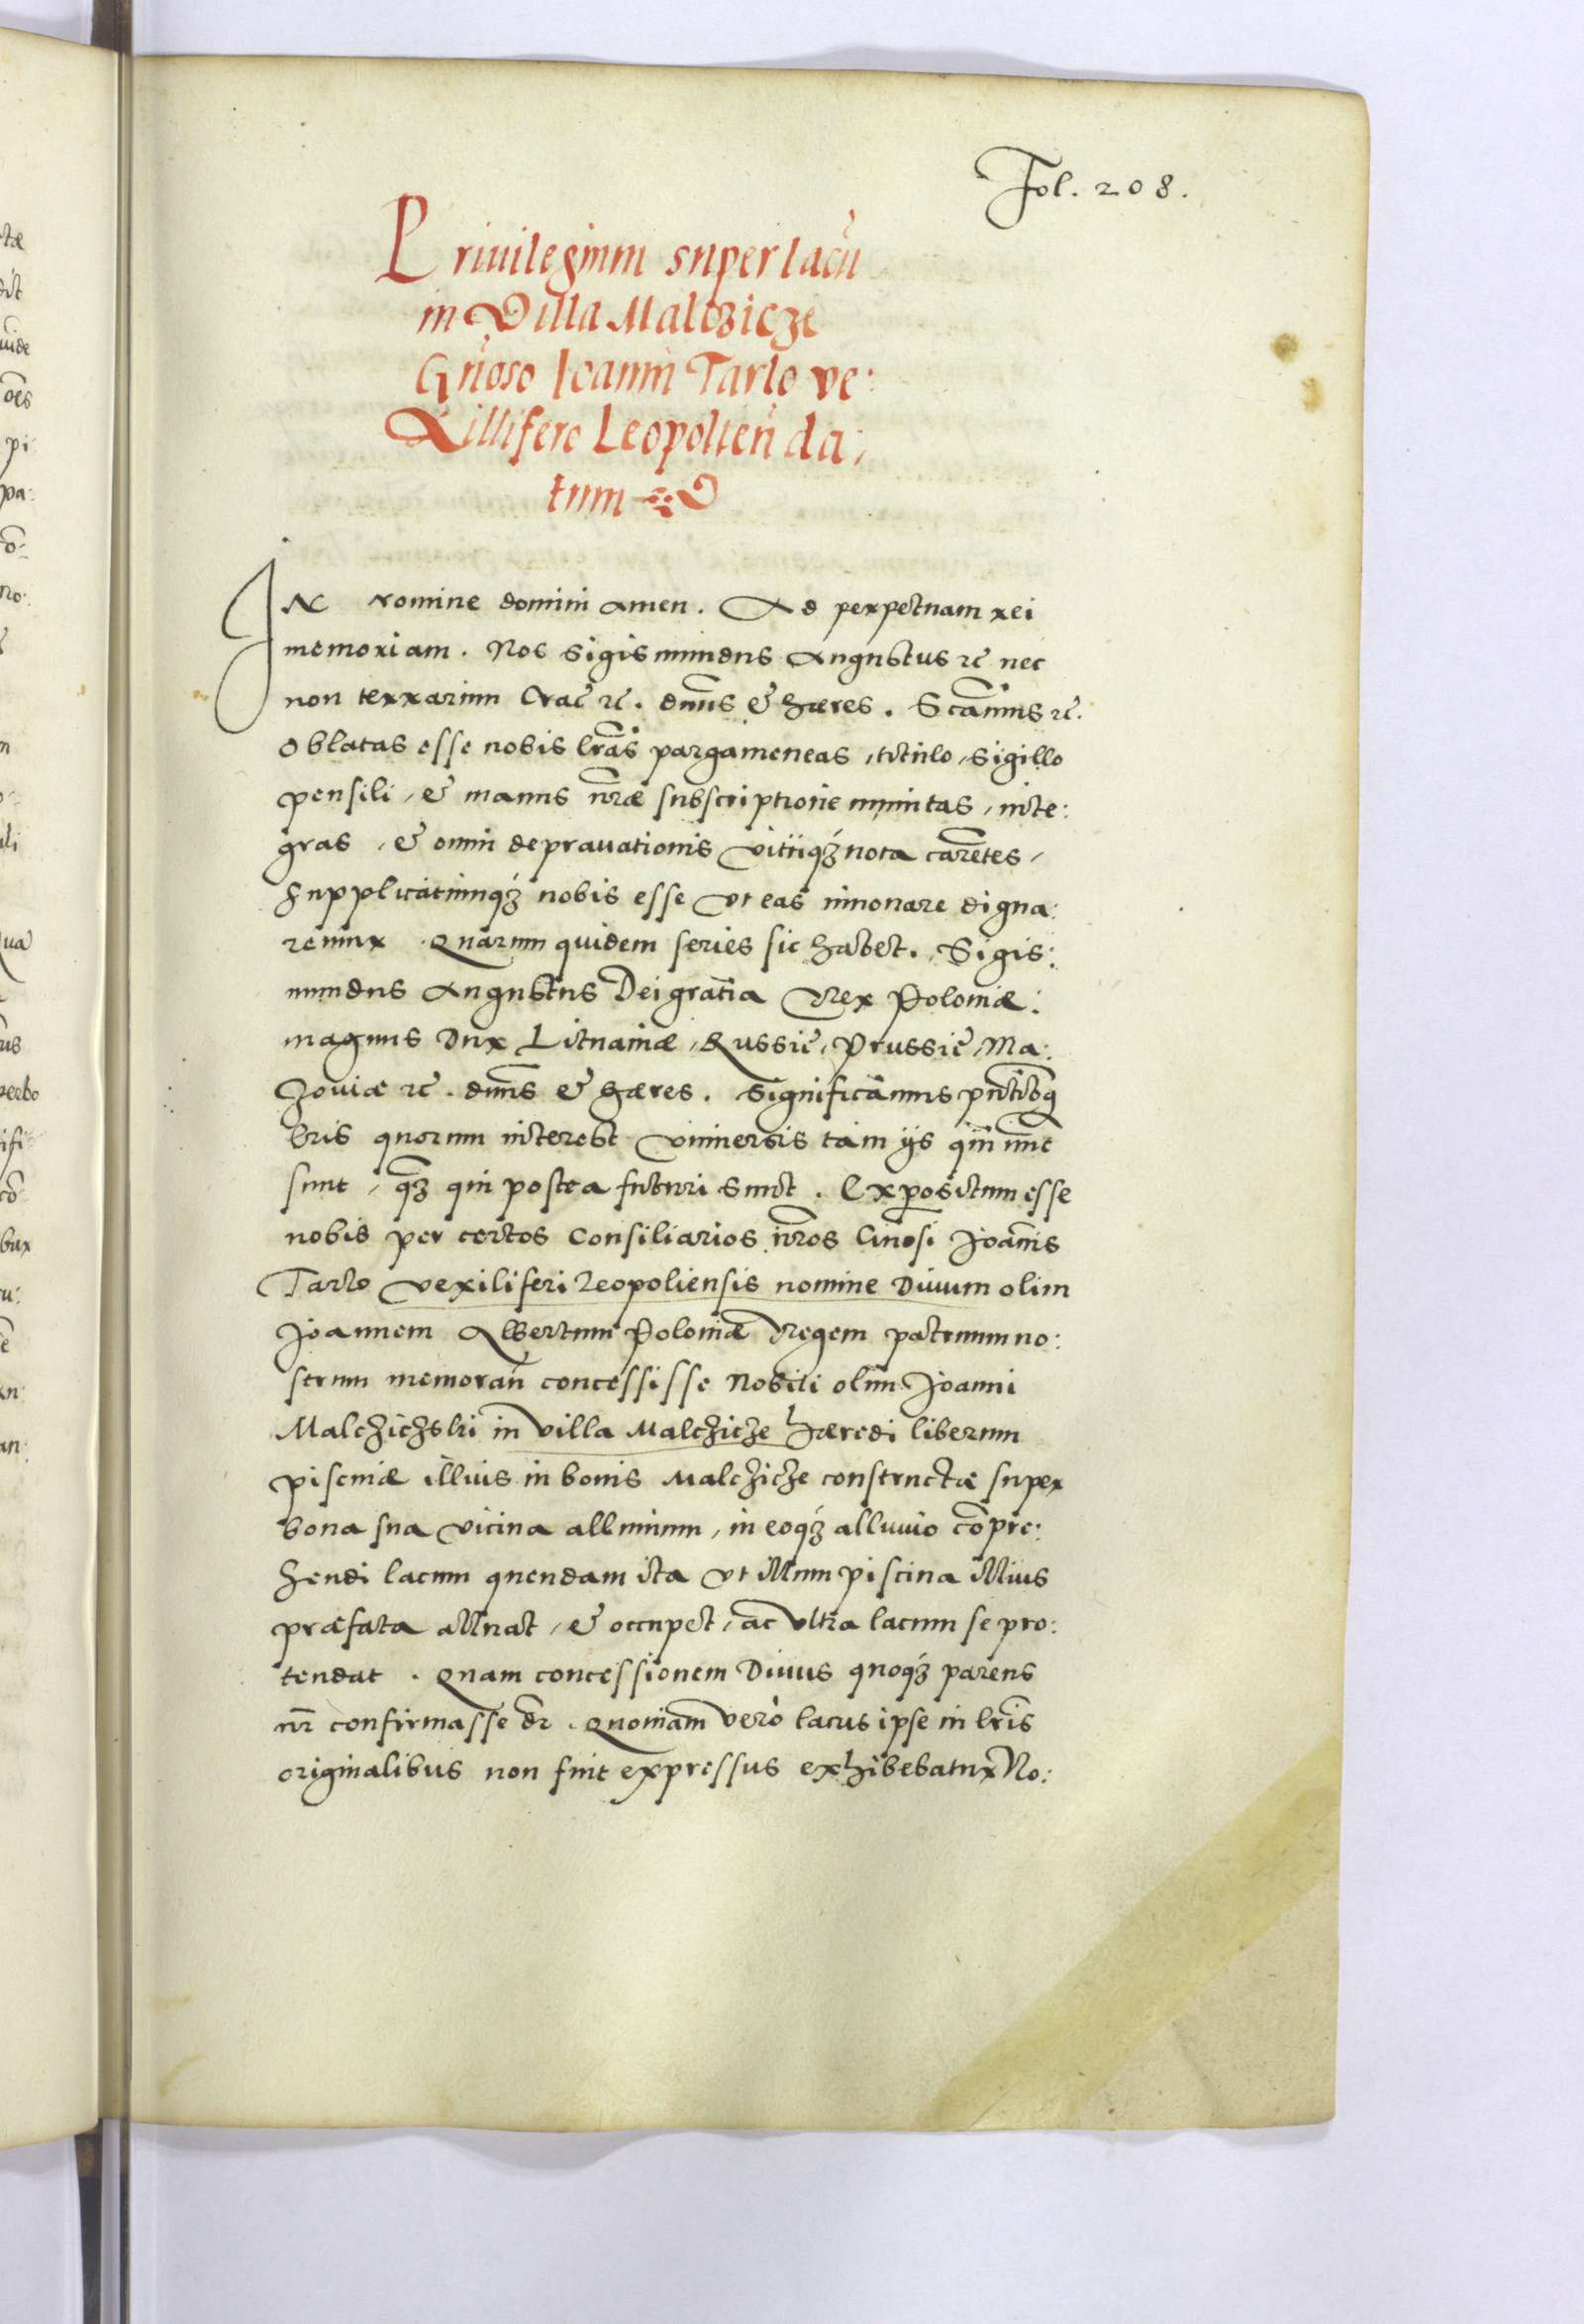 Fol. 208.
Priuilegium super lacū
in Villa Malczicze
Gn̄oso Ioanni Tarlo ve:
xillifero Leopolien̄ da:
tum
IN nomine domini amen. Ad perpetuam rei
memoriam. Nos Sigismundus Augustus ꝛc nec
non terrarum Crac̄ ꝛc. dn̄us & hæres. Scām̄us ꝛc.
Oblatas esse nobis lr̄as pargameneas, titulo, sigillo
pensili, & manus nr̄æ subscriptione munitas, inte:
gras, & omni deprauationis vitiiq́ꝫ nota carētes,
supplicatumq́ꝫ nobis esse vt eas innouare digna:
remur. Quarum quidem series sic habet. Sigis:
mundus Augustus Dei gratia Rex Poloniæ:
magnus Dux Lituaniæ, Russie, Prussie, Ma:
zouiæ ꝛc. dn̄us & hæres. Significamus pn̄tibq̄
lr̄is quorum interest vniuersis tam ijs qui nūc
sunt, q̄ꝫ qui postea futuri sunt. Expositum esse
nobis per certos Consiliarios nr̄os Gn̄osi Joannis
Tarlo vexiliferi Leopoliensis nomine Diuum olim
Joannem Albertum Poloniæ Regem patruum no:
strum memoran̄ concessisse Nobili olim Joanni
Malcziczski in villa Malczicze hæredi liberum
piscinæ illius in bonis Malczicze constructæ super
bona sua vicina alluuium, in eoq́ꝫ alluuio cōpre:
hendi lacum quendam ita vt illum piscina illius
præfata alluat, & occupet, ac vltra lacum se pro:
tendat. Quam concessionem Diuus quoq́ꝫ parens
nr̄ confirmasse dr̄. Quoniam verò lacus ipse in lr̄is
originalibus non fuit expressus exhibebatur No: